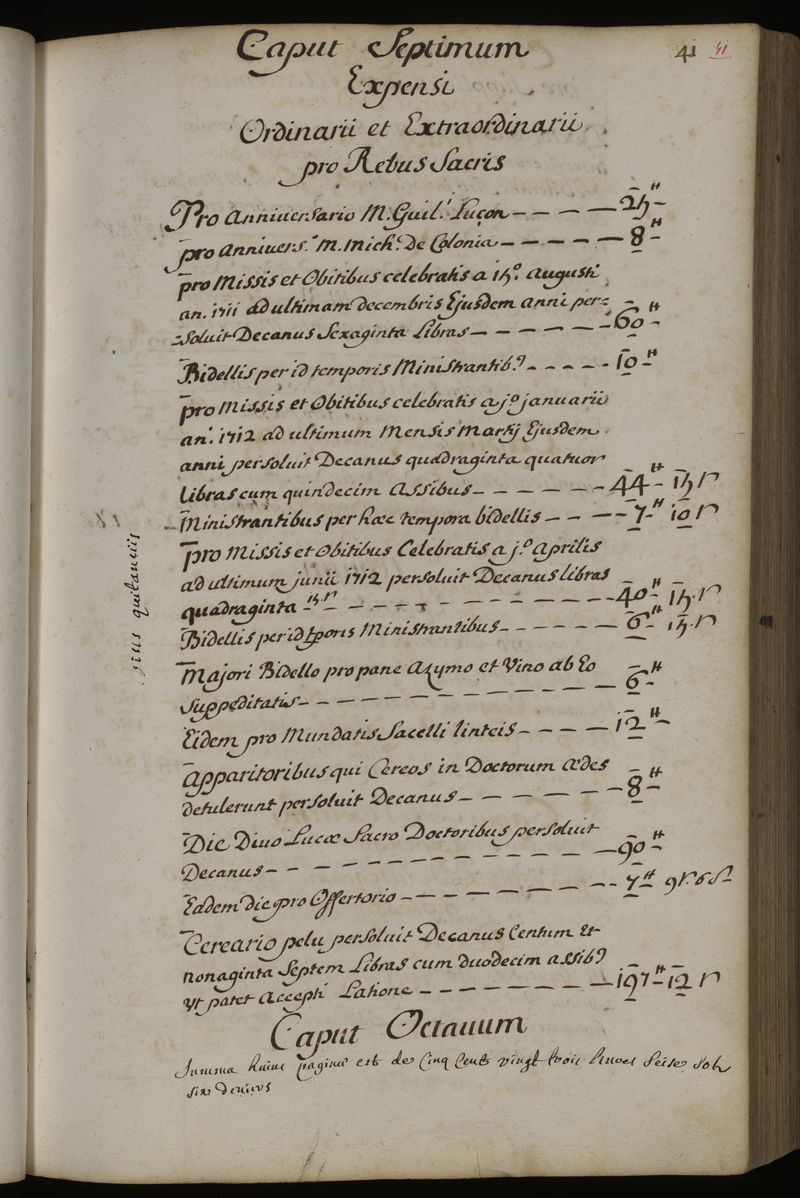 41 41
Caput Septimum
Expensi
Ordinarii et Extraordinarii
pro Rebus Sacris
Pro Anniuersario M. Guil. Luçon — — — — 25ᴴ
pro Anniuers.º M. Mich. De Colonia — — — — — 8ᴴ
pro Missis et Obitibus celebratis a 15º. Augusti
an. 1711 ad ultimam decembris Ejusdem anni per=
=soluit Decanus Sexaginta Libras — — — — — 60ᴴ
Bidellis per id temporis Ministrantib9 — — — — — 10ᴴ
pro Missis et Obitibus celebratis a jº januarii
an. 1712 ad ultimum Mensis Martij Ejusdem
anni persoluit Decanus quadraginta quatuor
libras cum quindecim Assibus — — — — — — 44ᴴ — 15 s
Ministrantibus per hæc tempora bidellis — — — — 7ᴴ 10 s
pro Missis et Obitibus Celebratis a j.º Aprilis
ad ultimum junii 1712 persoluit Decanus libras
quadraginta 15 s — — — — — — — — — — 40ᴴ 15 s
Bidellis per id tporis Ministrantibus — — — — — — 6ᴴ 15 s
Majori Bidello pro pane Azymo et Vino ab Eo
Suppeditatis — — — — — — — — — — — 6ᴴ
Eidem pro Mundatis Sacelli linteis — — — — 12ᴴ —
Apparitoribus qui Cereos in Doctorum ædes
detulerunt persoluit Decanus — — — — — — — 8ᴴ —
Die Diuo Lucæ Sacro Doctoribus persoluit
Decanus — — — — — — — — — — — 90ᴴ
Eadem die pro Offertorio — — — — — — — 7ᴴ 9 s 6 d
Cereario persoluit Decanus Centum Et
nonaginta Septem Libras cum duodecim assib9
Vt patet Accepti Latione — — — — — — — 197ᴴ — 12 s
Caput Octauum
Summa huius paginæ est de Cinq Cents vingt trois liures Seise Sols
six deniers
visis quitanciis